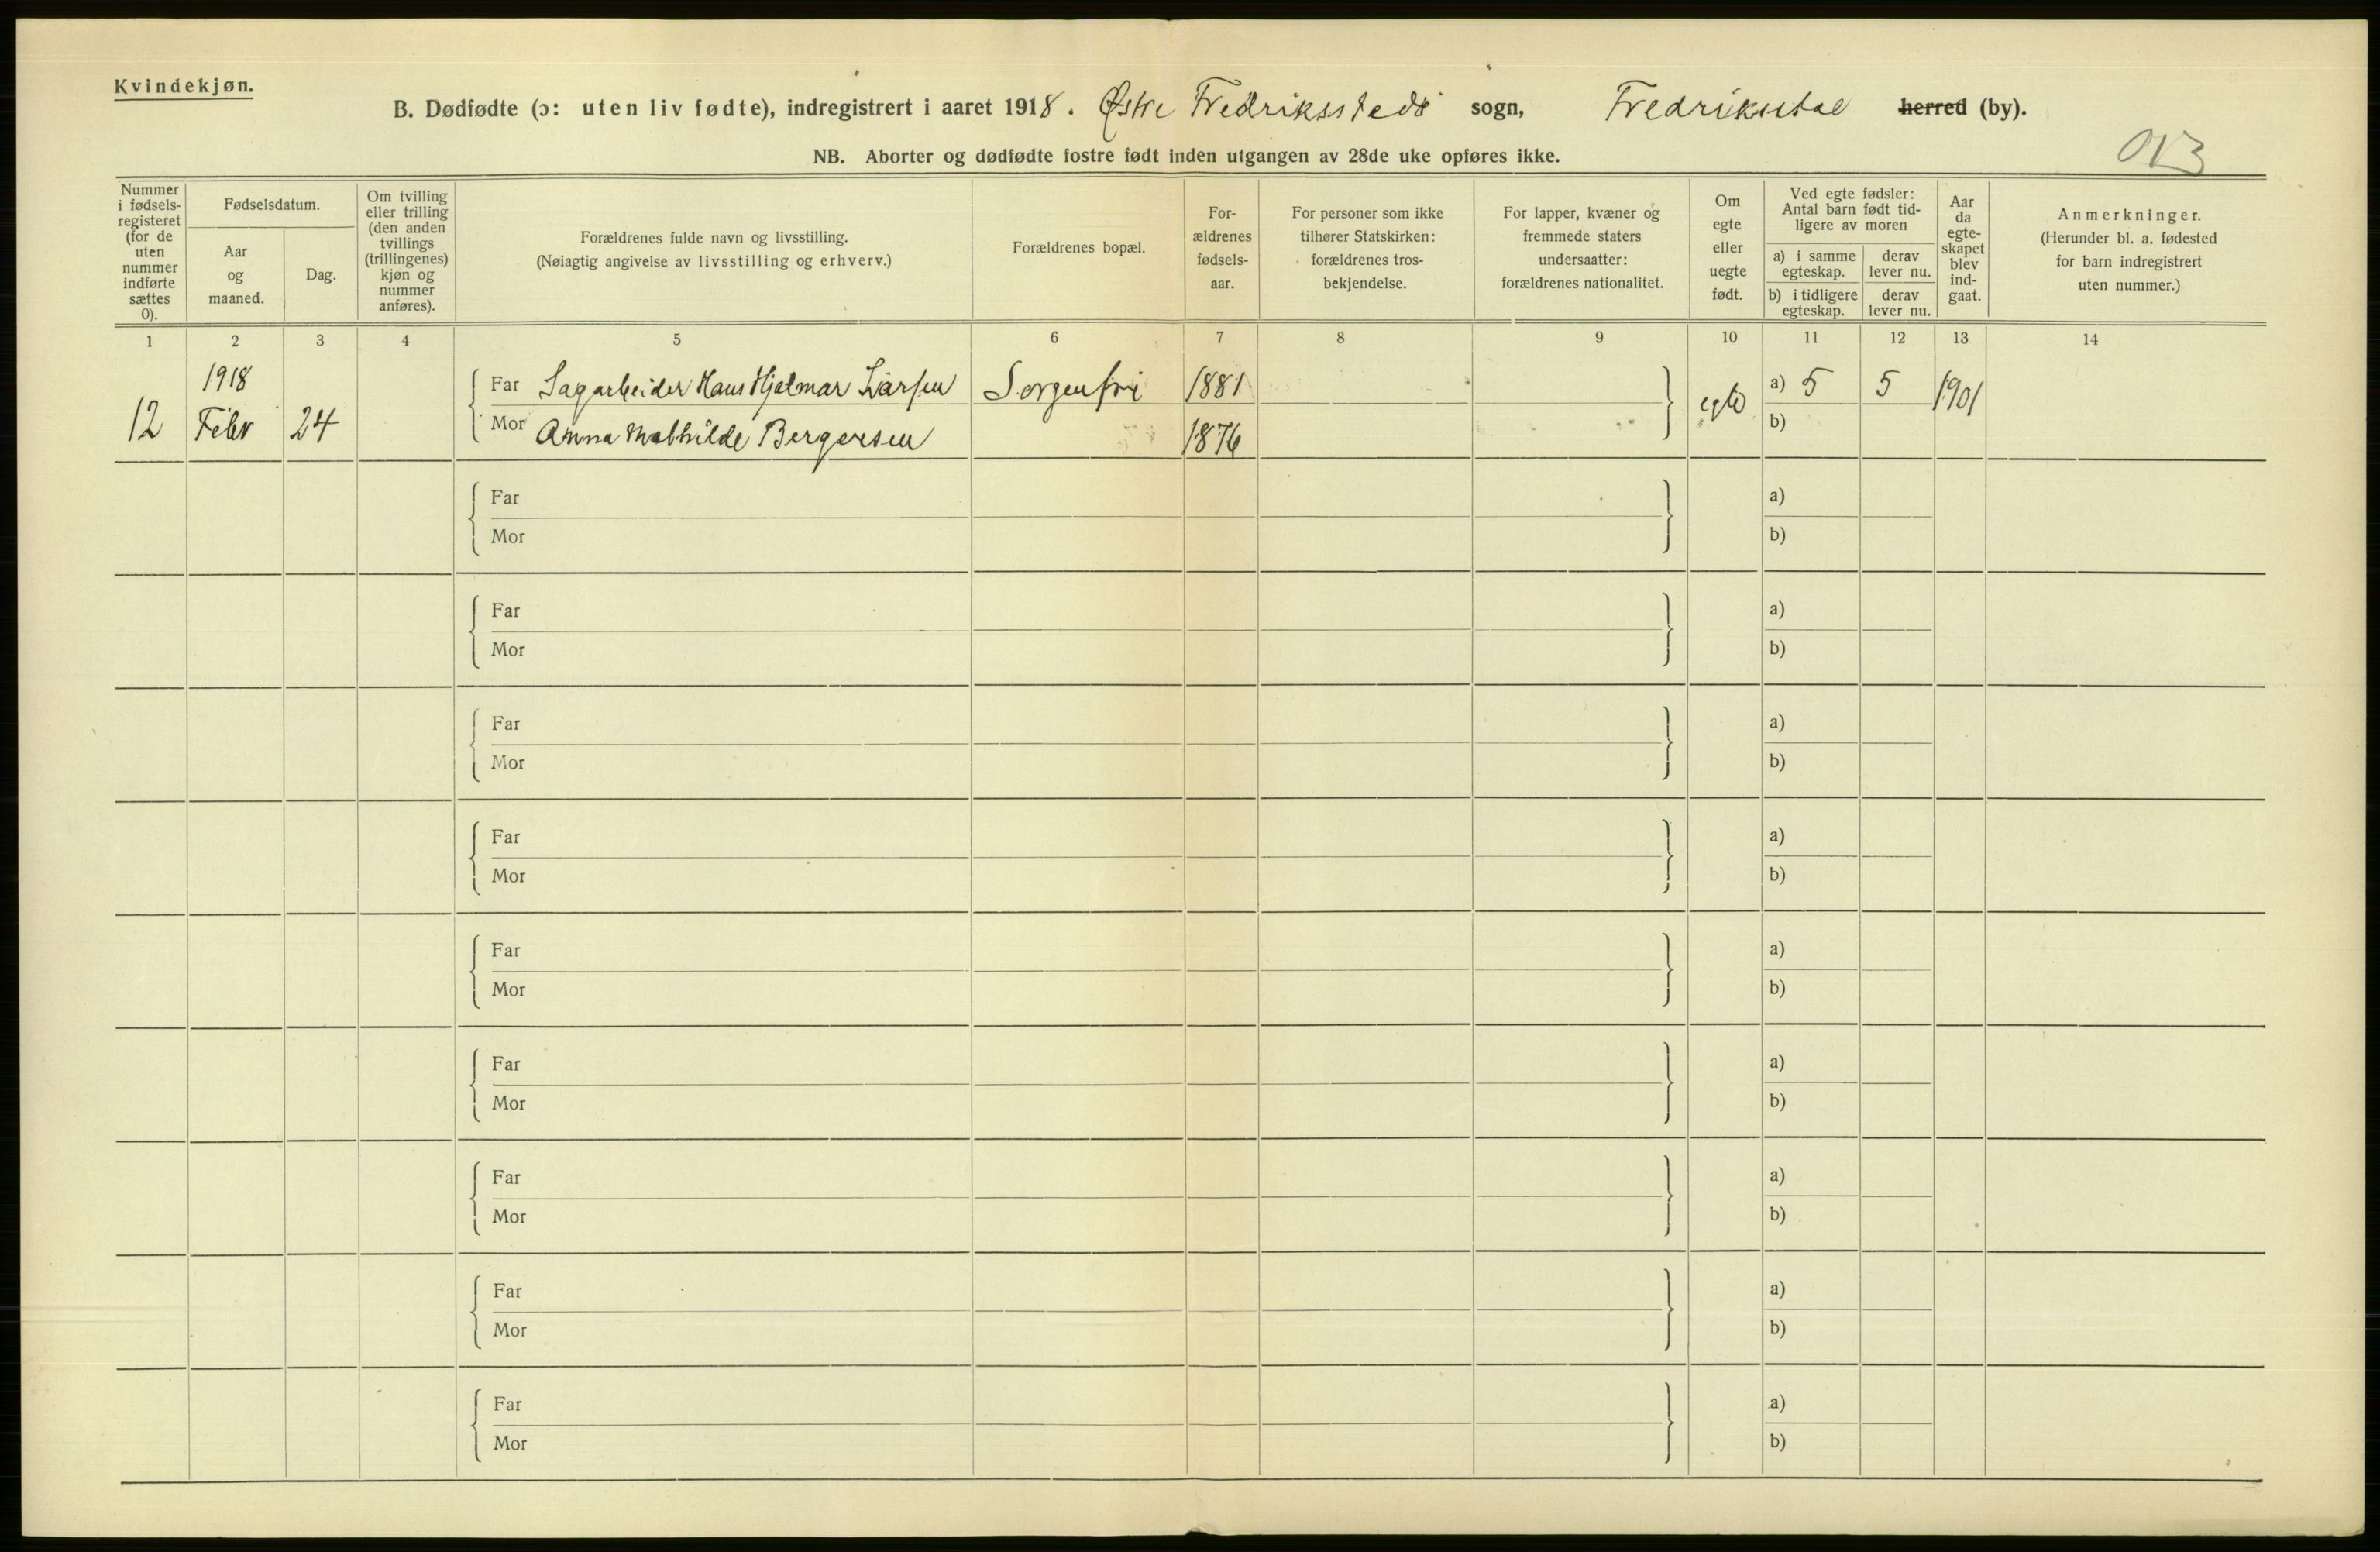 Kvindekjøn.
B. Dødfødte (ɔ: uten liv fødte), indregistrert i aaret 1918. Østre Fredriksstads sogn, Fredrikstad herred (by).
NB. Aborter og dødfødte fostre født inden utgangen av 28de uke opføres ikke.
Nummer i fødsels-registeret (for de uten nummer indførte sættes 0).
Fødselsdatum.
Aar og maaned.
Dag.
Om tvilling eller trilling (den anden tvillings (trillingenes) kjøn og nummer anføres).
Forældrenes fulde navn og livsstilling.
(Nøiagtig angivelse av livsstilling og erhverv.)
Forældrenes bopæl.
For-ældrenes fødsels-aar.
For personer som ikke tilhører Statskirken: forældrenes tros-bekjendelse.
For lapper, kvæner og fremmede staters undersaatter: forældrenes nationalitet.
Om egte eller uegte født.
Ved egte fødsler: Antal barn født tid-ligere av moren
a) i samme egteskap.
derav lever nu.
b) i tidligere egteskap.
derav lever nu.
Aar da egte-skapet blev ind-gaat.
Anmerkninger.
(Herunder bl. a. fødested for barn indregistrert uten nummer.)
1 2 3 4 5 6 7 8 9 10 11 12 13 14
1918
Far Sagarbeider Hans Hjalmar Larsen Sorgenfri 1881 a) 5 5 1901
12 Febr 24 egte
Mor Anna Mathilde Bergersen 1876 b)
Far a)
Mor b)
Far a)
Mor b)
Far a)
Mor b)
Far a)
Mor b)
Far a)
Mor b)
Far a)
Mor b)
Far a)
Mor b)
Far a)
Mor b)
Far a)
Mor b)